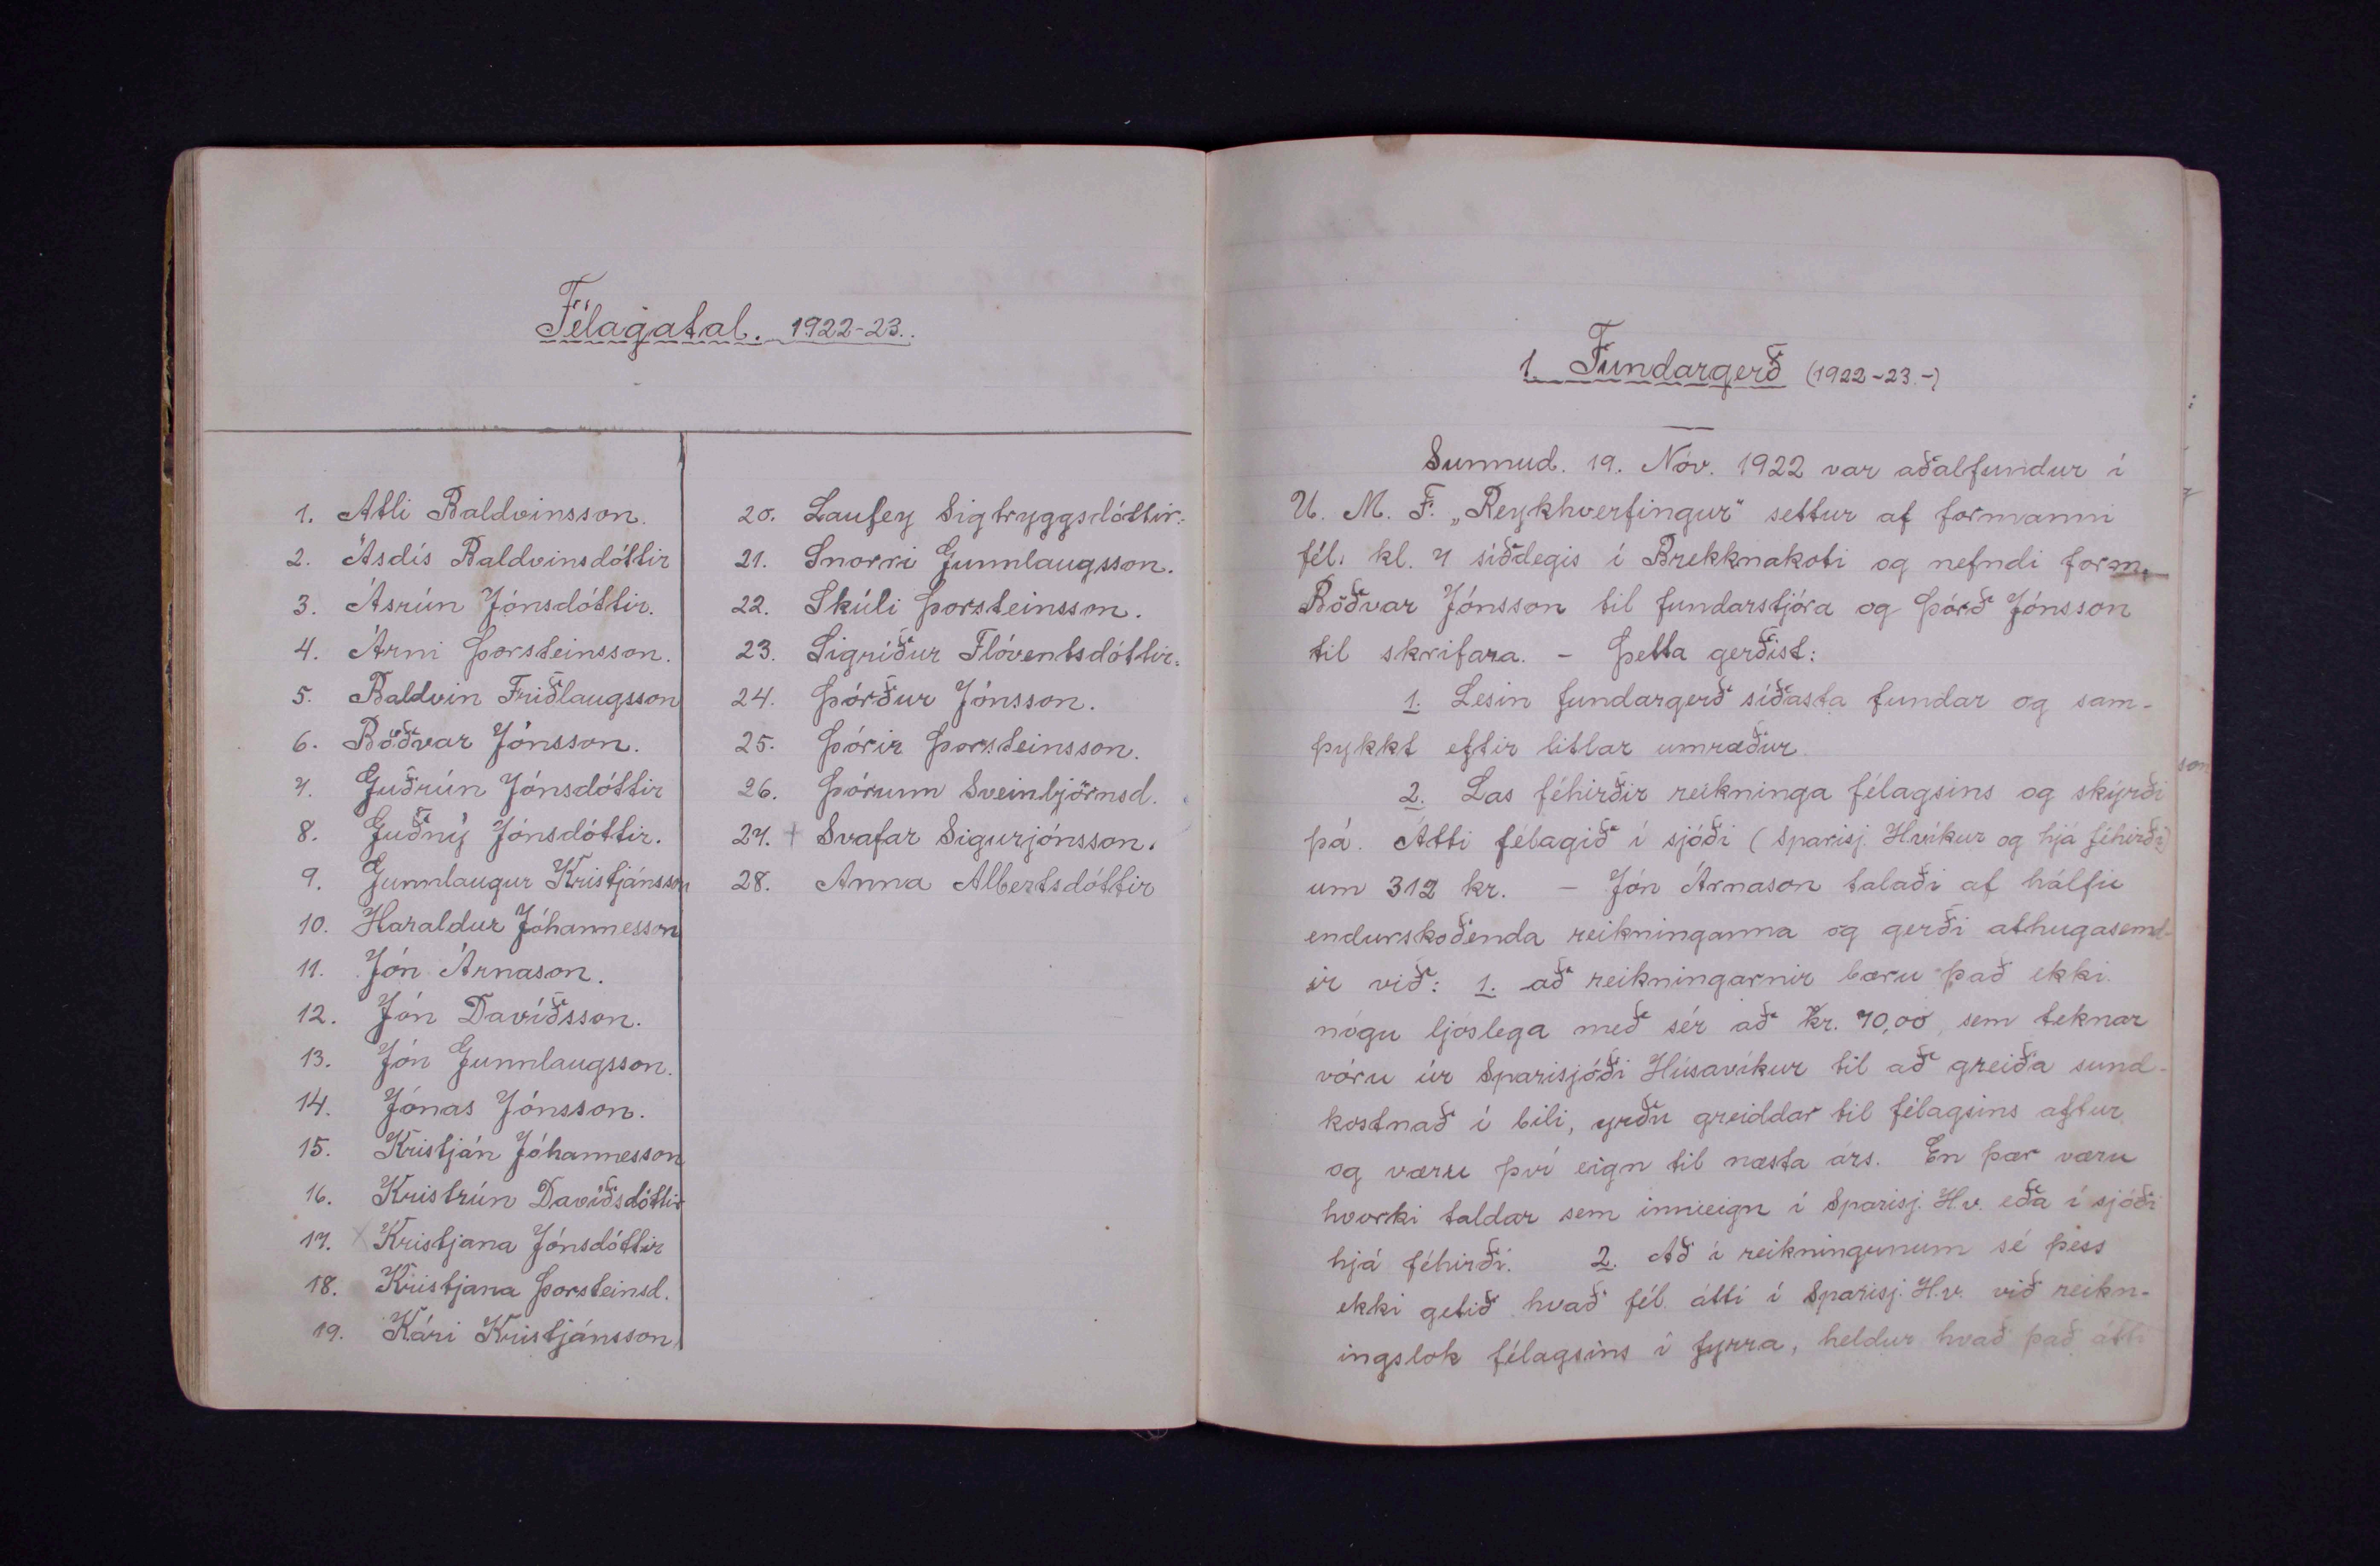 Félagatal. 1922-23.
1. Atli Baldvinsson.
2. Ásdís Baldvinsdóttir
3. Ásrún Jónsdóttir.
4. Árni Þorsteinsson.
5. Baldvin Friðlaugsson
6. Böðvar Jónsson.
7. Guðrún Jónsdóttir
8. Guðný Jónsdóttir.
9. Gunnlaugur Kristjánsson
10. Haraldur Jóhannesson
11. Jón Árnason.
12. Jón Davíðsson.
13. Jón Gunnlaugsson.
14. Jónas Jónsson.
15. Kristján Jóhannesson
16. Kristrún Davíðsdóttir
17. Kristjana Jónsdóttir
18. Kristjana Þorsteinsd.
19. Kári Kristjánsson
20. Laufey Sigtryggsdóttir.
21. Snorri Gunnlaugsson.
22. Skúli Þorsteinsson.
23. Sigríður Flóventsdóttir.
24. Þórður Jónsson.
25. Þórir Þorsteinsson.
26. Þórunn Sveinbjörnsd.
27. + Svafar Sigurjónsson.
28. Anna Albertsdóttir
1. Fundargerð (1922-23.-)
Sunnud. 19. Nóv. 1922 var aðalfundur í
U. M. F. „Reykhverfingur" settur af formanni
fél. kl. 7 síðdegis í Brekknakoti og nefndi form.
Böðvar Jónsson til fundarstjóra og Þórð Jónsson
til skrifara. - Þetta gerðist:
1. Lesin fundargerð síðasta fundar og sam-
þykkt eftir litlar umræður.
2. Las féhirðir reikninga félagsins og skýrði
þá. Átti félagið í sjóði (Sparisj. H.víkur og hjá féhirði)
um 312 kr. - Jón Árnason talaði af hálfu
endurskoðenda reikninganna og gerði athugasemd-
ir við: 1. að reikningarnir bæru það ekki
nógu ljóslega með sér að Kr. 70,00, sem teknar
vóru úr Sparisjóði Húsavíkur til að greiða sund-
kostnað í bili, yrðu greiddar til félagsins aftur
og væru því eign til næsta árs. En þær væru
hvorki taldar sem innieign í Sparisj. H.v. eða í sjóði
hjá féhirði. 2. Að í reikningunum sé þess
ekki getið hvað fél. átti í Sparisj. H.v. við reikn-
ingslok félagsins í fyrra, heldur hvað það átti
son